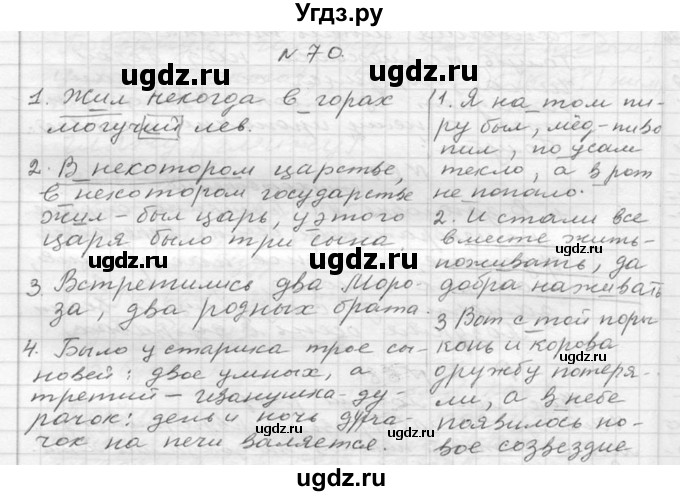 Угдз.ру
№ 70.
ugdz.ru
ugdz.ru
1. Жил некогда в горах
могучий лев.
2. В некотором царстве,
в некотором государстве
жил-был царь, у этого
царя было три сына.
3 Встретились два Моро-
за, два родных брата.
4. Было у старика трое сы-
новей: двое умных, а
третий - Иванушка-ду-
рачок: день и ночь дура-
чок на печи валяется.
1. Я на том пи-
ру был, мёд-пиво
пил, по усам
текло, а в рот
не попало.
2. И стали все
вместе жить-
поживать, да
добра наживать
3 Вот с той поры
конь и корова
дружбу потеря-
ли, а в небе
появилось но-
вое созвездие
ugdz.ru
ugdz.ru
ugdz.ru
ugdz.ru
ugdz.ru
ugdz.ru
ugdz.ru
ugdz.ru